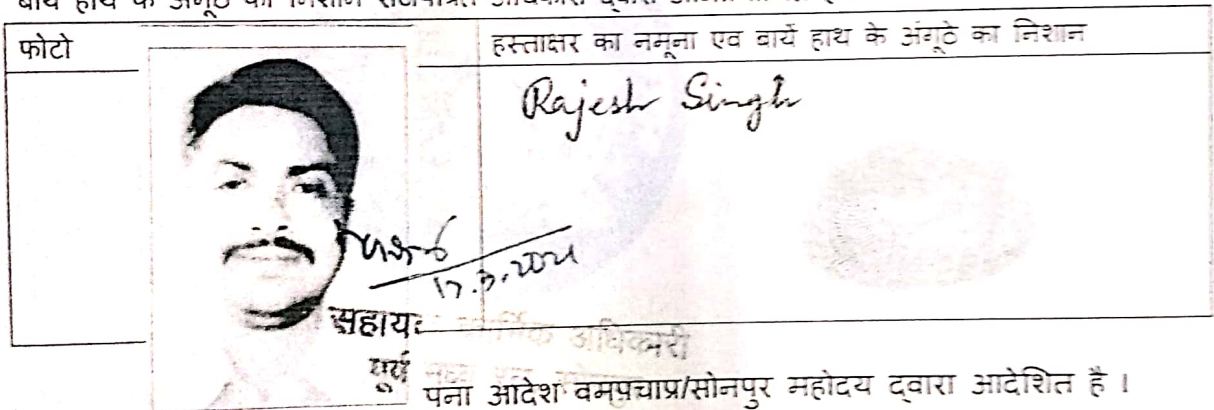 बायें हाथ के अंगूठे का निशान राजपत्रित अधिकारी द्वारा
फोटो
हस्ताक्षर का नमूना एव बायें हाथ के अंगूठे का निशान
Rajesh Singh
सहायक कार्मिक अधिकारी
पूर्व
पना आदेश वमप्रचाप्र/सोनपुर महोदय द्वारा आदेशित है ।